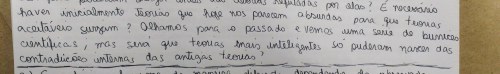 reguladas por elas? É necessário
haver inicialmente teorias que hoje nos parecem absurdas para que teorias
aceitáveis surgem? Olhamos para o passado e vemos uma série de
científicas, mas será que teorias mais inteligentes só puderam nascer das
contradições internas das antigas teorias?